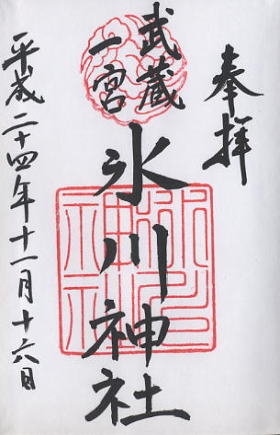 奉拝
武蔵
一宮
氷川神社
平成二十四年十一月十六日